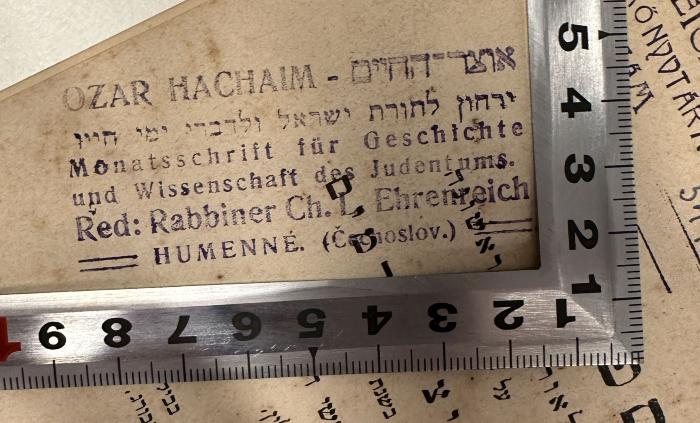 OZAR HACHAIM - אוצר־החיים
ירחון לתורת ישראל ולדברי ימי חייו
Monatsschrift für Geschichte
und Wissenschaft des Judentums.
Red: Rabbiner Ch. L. Ehrenreich
HUMENNÉ. (Čechoslov.)
5
4
3
2
1
9 8 7 6 5 4 3 2 1
KÖNYVTÁR
בשנת
על